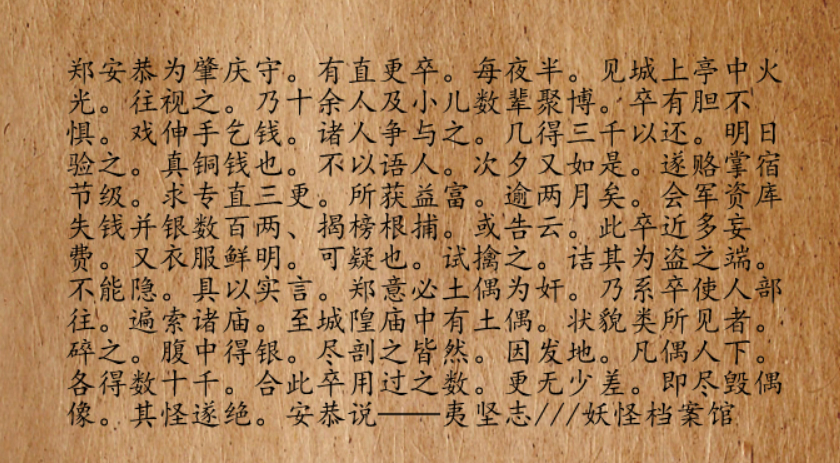 郑安恭为肇庆守。有直更卒。每夜半。见城上亭中火
光。往视之。乃十余人及小儿数辈聚博。卒有胆不
惧。戏伸手乞钱。诸人争与之。几得三千以还。明日
验之。真铜钱也。不以语人。次夕又如是。遂赂掌宿
节级。求专直三更。所获益富。逾两月矣。会军资库
失钱并银数百两、揭榜根捕。或告云。此卒近多妄
费。又衣服鲜明。可疑也。试擒之。诘其为盗之端。
不能隐。具以实言。郑意必土偶为奸。乃系卒使人部
往。遍索诸庙。至城隍庙中有土偶。状貌类所见者。
碎之。腹中得银。尽剖之皆然。因发地。凡偶人下。
各得数十千。合此卒用过之数。更无少差。即尽毁偶
像。其怪遂绝。安恭说——夷坚志///妖怪档案馆